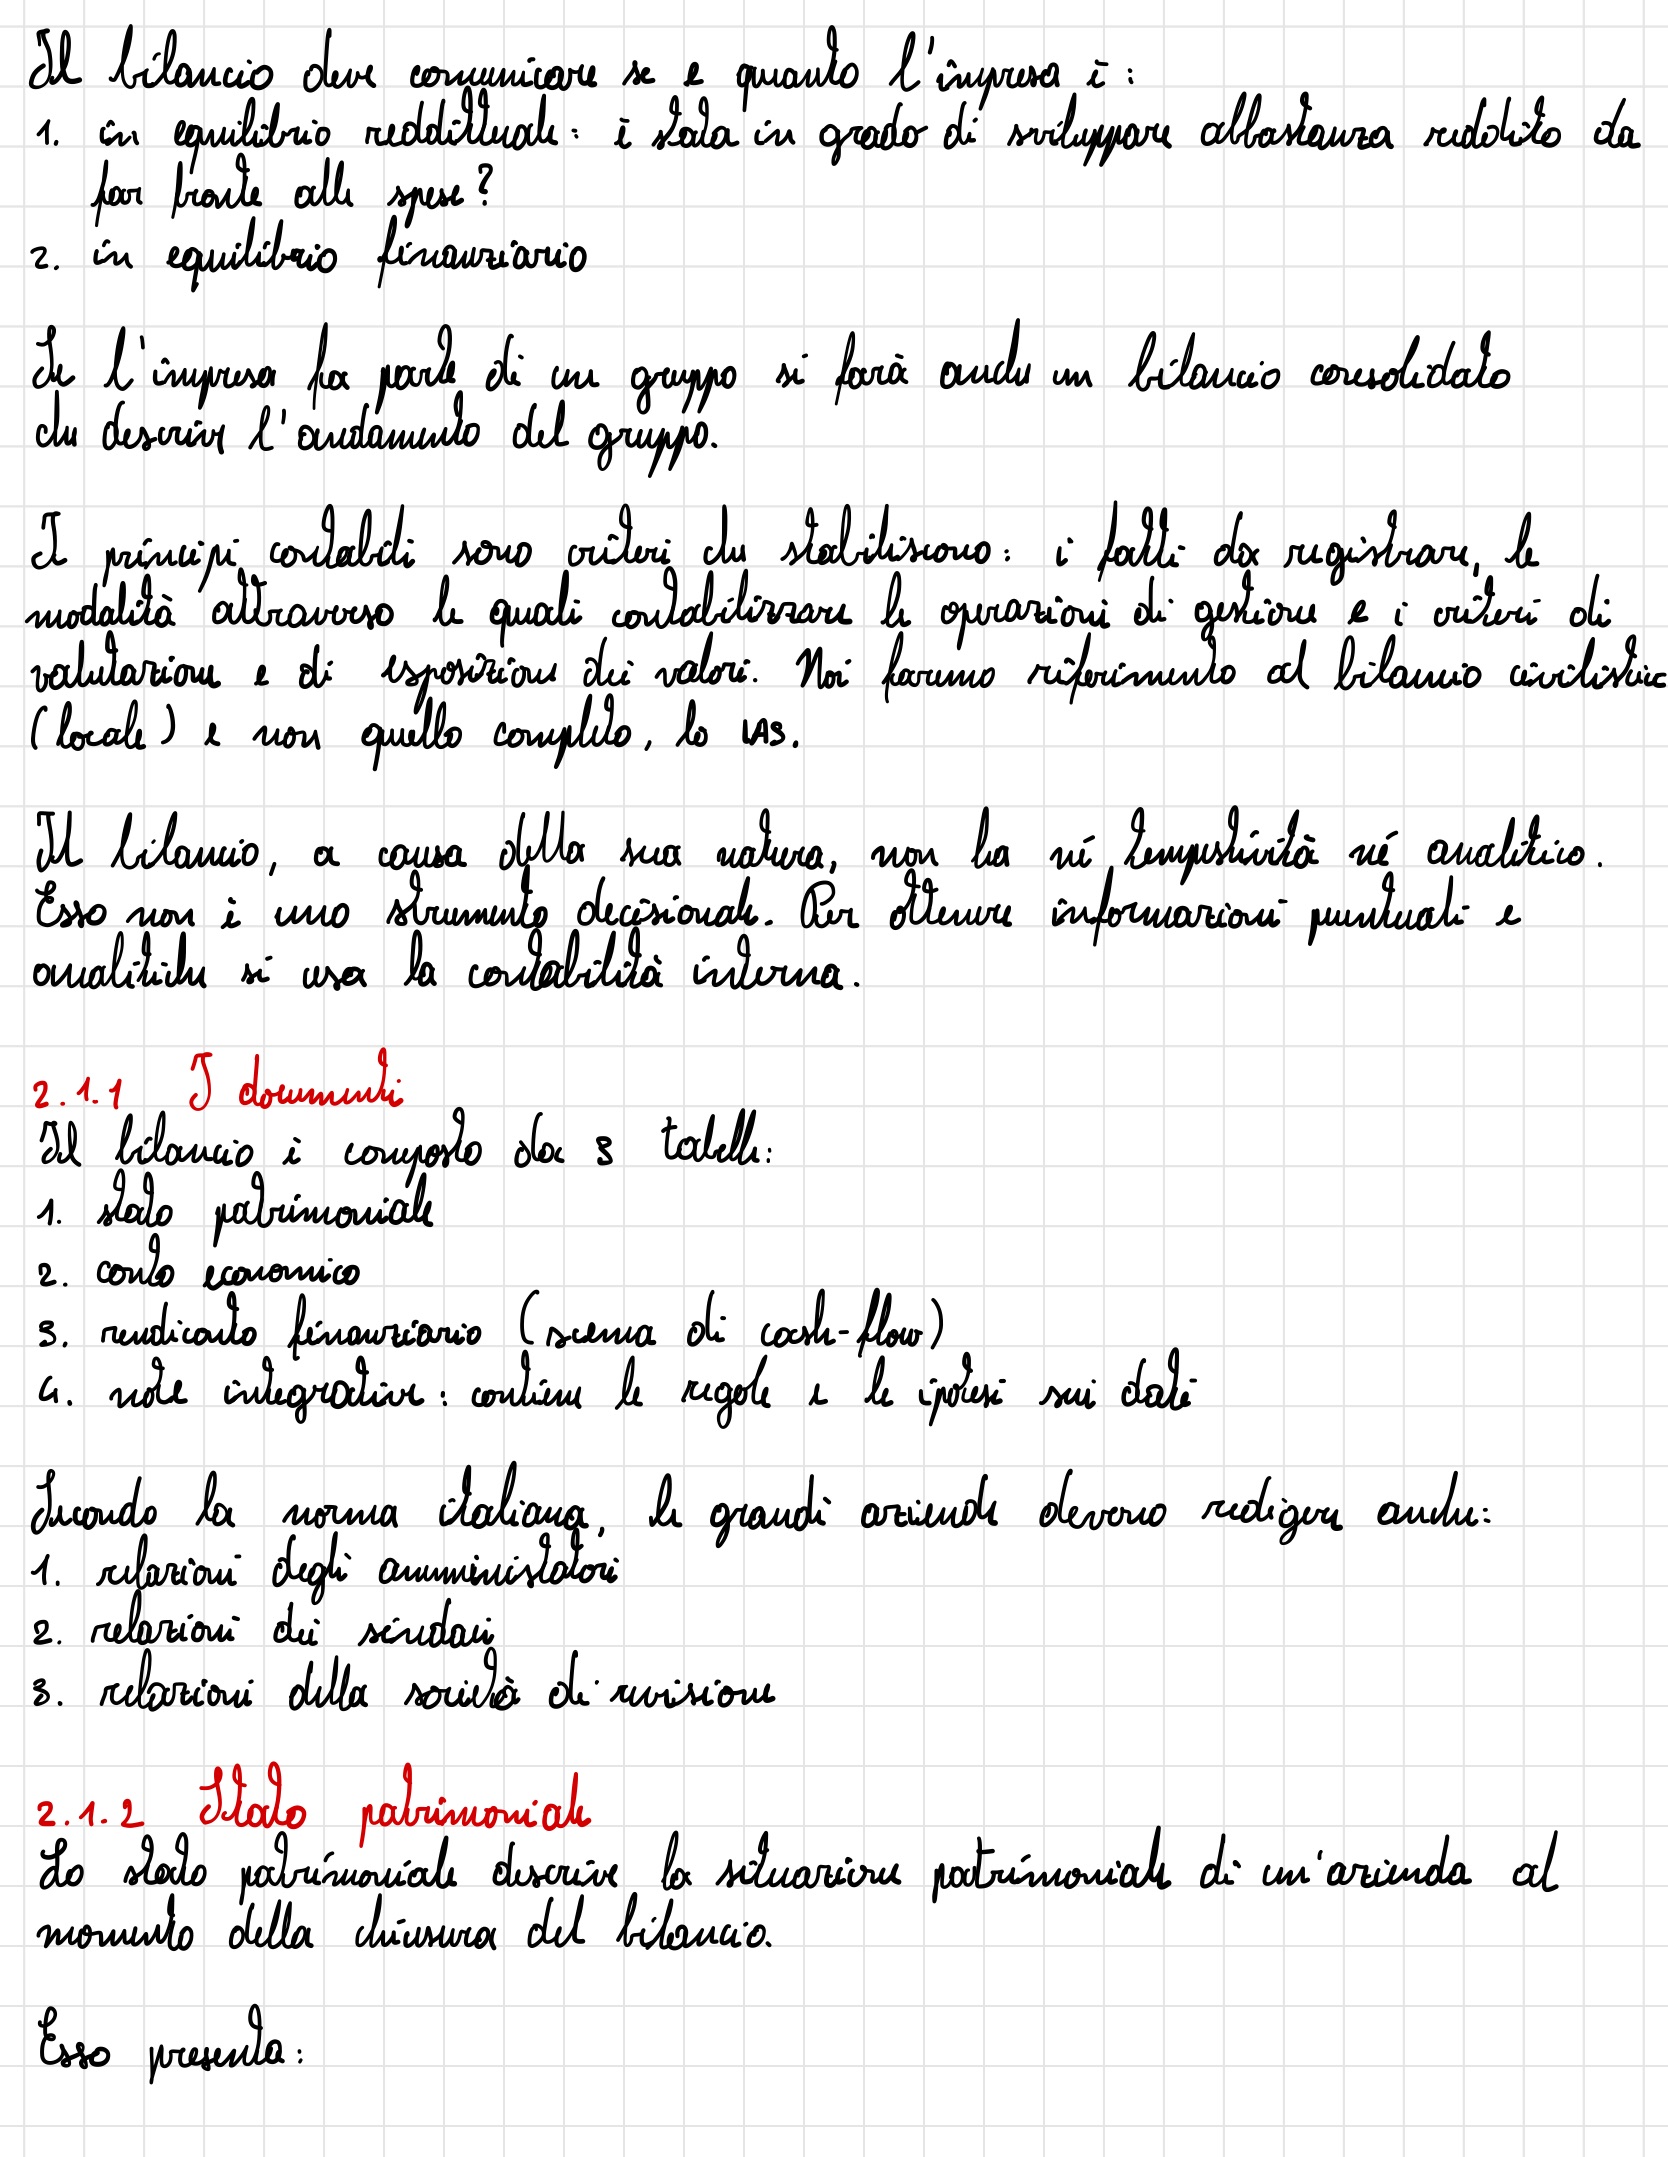 Il bilancio deve comunicare se e quanto l'impresa è:
1. in equilibrio reddittuale: è stata in grado di sviluppare abbastanza reddito da
far fronte alle spese?
2. in equilibrio finanziario
Se l'impresa fa parte di un gruppo si farà anche un bilancio consolidato
che descrive l'andamento del gruppo.
I principi contabili sono criteri che stabiliscono: i fatti da registrare, le
modalità attraverso le quali contabilizzare le operazioni di gestione e i criteri di
valutazione e di esposizione dei valori. Noi faremo riferimento al bilancio civilistic
(locale) e non quello completo, lo IAS.
Il bilancio, a causa della sua natura, non ha né tempestività né analitico.
Esso non è uno strumento decisionale. Per ottenere informazioni puntuali e
analitiche si usa la contabilità interna.
2.1.1 I documenti
Il bilancio è composto da 3 tabelle:
1. stato patrimoniale
2. conto economico
3. rendiconto finanziario (scema di cash-flow)
4. note integrative: contiene le regole e le ipotesi sui dati
Secondo la norma italiana, le grandi aziende devono redigere anche:
1. relazioni degli amministatori
2. relazioni dei sindaci
3. relazioni della società di revisione
2.1.2 Stato patrimoniale
Lo stato patrimoniale descrive la situazione patrimoniale di un'azienda al
momento della chiusura del bilancio.
Esso presenta: